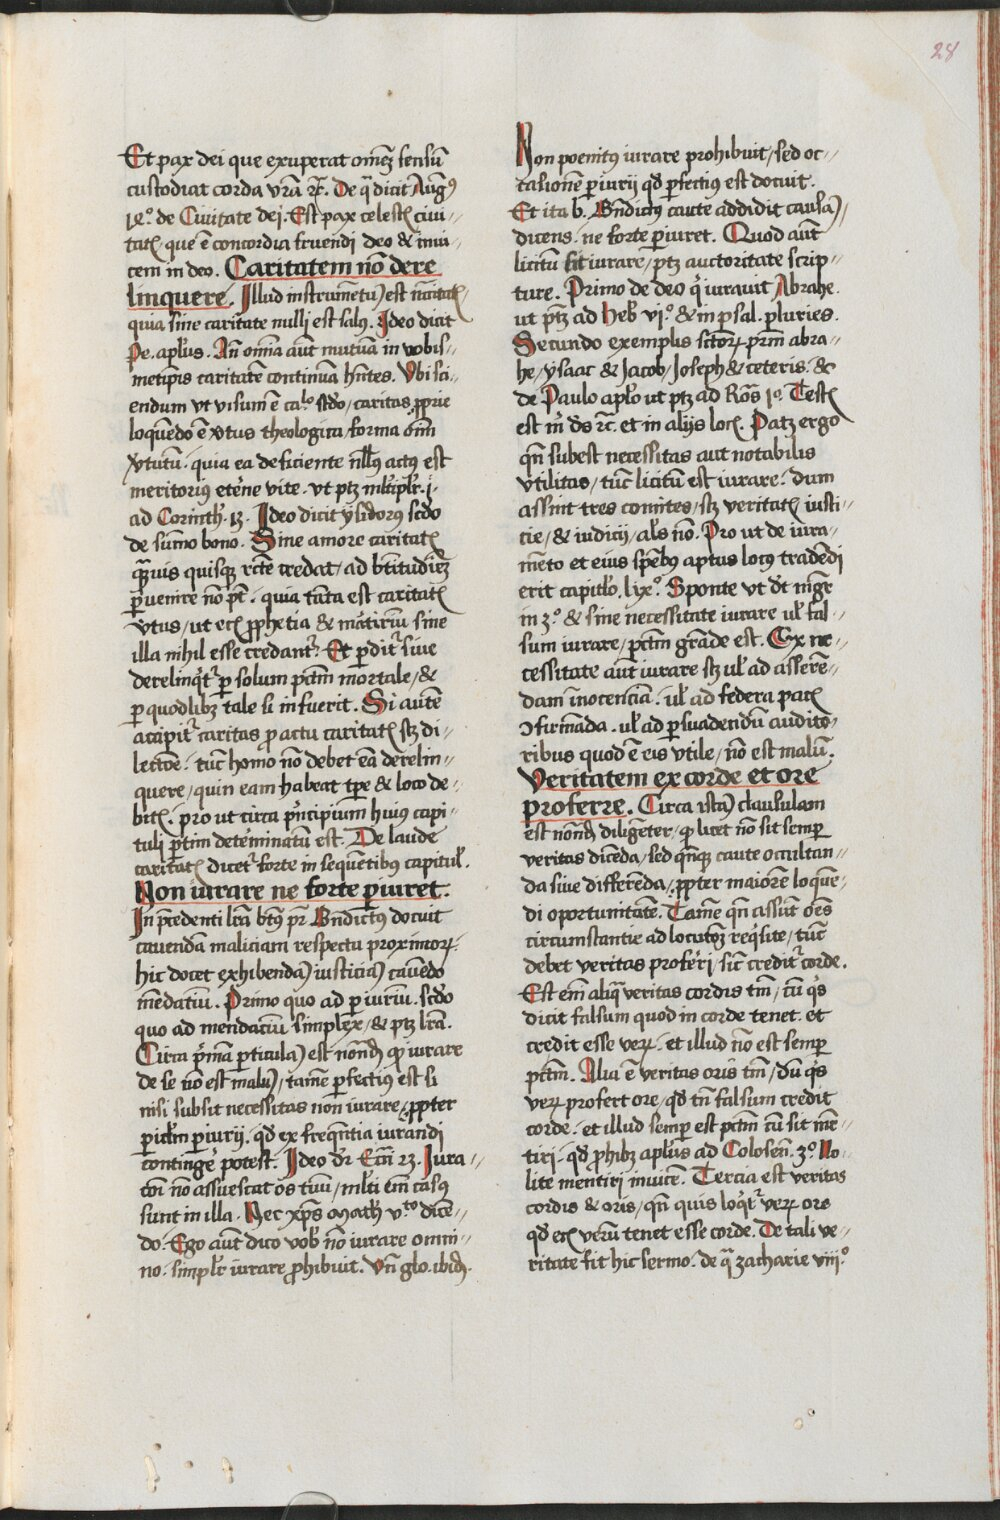 28
Et pax dei que exuperat omēꝫ sensū
custodiat corda vr̄a ꝛc̄. De q̄ dicit Augꝰ
19.º de Ciuitate dej. Est pax celestꝭ ciui〃
tatꝭ que ē concordia fruendi deo & inui〃
cem in deo. Caritatem nō dere
linquere. Illud instrumētū est
quia sine caritate nulli est salꝰ. Ideo dicit
Pe. aplꝰs. An̄ omīa aūt mutuā in vobis〃
metip̄is caritatē continuā hn̄tes. Vbi sci〃
endum vt visum ē caº. scd̄o, caritas ꝓprie
loquēdo ē v̄tus theologica, forma om̄
v̄tutū. quia ea deficiente nllꝰ actꝰ est
meritoriꝰ et̄ne vite. vt ptꝫ mltiplr̄. j.
ad Corinth̄. 13. Ideo dicit ysidorꝰ scd̄o
de sūmo bono. Sine amore caritatꝭ
qͣmuis quisqꝫ rc̄te credat, ad bt̄itudīēꝫ
ꝑuenire nō pt̄. quia tāta est caritatꝭ
v̄tus, ut ecꝭ ꝓphetia & mātiriū sine
illa nihil esse credant̄. Et ꝑdit̄ siue
derelinq̄t̄ ꝑ solum pctm̄ mortale, &
ꝑ quodlibꝫ tale si infuerit. Si autē
accipit̄ caritas ꝓ actu caritatꝭ stꝫ di〃
lectōe. tūc homo nō debet eā derelin〃
quere, quin eam habeat tp̄e & loco de〃
bitꝭ. pro ut circa pͥncipium huiꝰ capi〃
tuli ꝑtim determinatū est. De laude
caritatꝭ dicet̄ forte in sequētibꝰ capitul̄.
Non iurare ne forte ꝑiuret.
In p̄cedenti lr̄a bt̄ꝰ pr̄ Bn̄dictꝰ docuit
cauendā maliciam respectu proximorꝝ.
hic docet exhibendā iusticiā cauēdo
mēdatiū. Primo quo ad ꝑiuriū. scd̄o
quo ad mendaciū simplex, & ptꝫ lr̄a.
Circa pͥmā ꝑticulā est nōndꝫ ꝙ iurare
de se nō est malū, tamē ꝑfectiꝰ est si
nisi subsit necessitas non iurare, ꝓpter
ꝑicl̄m ꝑiurij. qd̄ ex freqn̄tia iurandi
contingē potest. Ideo dr̄ Eccī 23. Iura〃
cōi nō assuescat os tuū, ml̄ti em̄ casꝰ
sunt in illa. Nec xp̄s Math̄ vᵗᵒ dicē〃
do. Ego aūt dico vob̄ nō iurare omni〃
no. simplr̄ iurare ꝓhibuit. Vn̄ glo. ibid̄.
Non poenitꝰ iurare prohibuit, sed oc〃
casionē ꝑiurij qd̄ ꝑfectiꝰ est docuit.
Et ita b. Bn̄dictꝰ caute addidit causā,
dicens. ne forte ꝑiuret. Quod aūt
licitū sit iurare, ptꝫ auctoritate scrip〃
ture. Primo de deo qͥ iurauit Abrahe.
ut ptꝫ ad Heb̄ vjº. & in psal. pluries.
Secundo exemplis sctōrꝝ prm̄ abra〃
he, ysaac & Jacob, Joseph & ceteris. &
de Paulo aplō ut ptꝫ ad Roās 1º. Testꝭ
est m̄ ds̄ ꝛc̄. et in alijs locꝭ. Patꝫ ergo
qn̄ subest necessitas aut notabilis
vtilitas, tūc licitū est iurare. dum
assint tres comites, stꝫ veritatꝭ iusti〃
cie, & iudicij, als̄ nō. Pro ut de iura〃
mēto et eius spēbꝰ aptus locꝰ tradēdi
erit capitl̄o. lixº. Sponte vt dt̄ mḡr
in 3º. & sine necessitate iurare ul̄ fal〃
sum iurare, pctm̄ grāde est. Ex ne〃
cessitate aūt iurare stꝫ ul̄ ad asserē〃
dam īnocenciā. ul̄ ad federa pacꝭ
ↄfirmāda. ul̄ ad ꝑsuadendū audito〃
ribus quod ē eis vtile, nō est malū.
Veritatem ex corde et ore
proferre. Circa istā clausulam
est nōndꝫ diligēter, ꝙ licet nō sit semꝑ
veritas dicēda, sed qn̄qꝫ caute occultan〃
da siue differēda, ꝓpter maiorē loquē〃
di oportunitatē. Tamē qn̄ assūt oēs
circumstantie ad locutōꝫ reqͥsite, tūc
debet veritas proferri, sic̄ credit̄ corde.
Est em̄ aliq̄ veritas cordis tm̄, cū qͥs
dicit falsum quod in corde tenet. et
credit esse verꝝ. et illud nō est semꝑ
pctm̄. Alia ē veritas oris tm̄, dū qͥs
verꝝ profert ore, qd̄ tn̄ falsum credit
corde. et illud semꝑ est pctm̄ cū sit mē〃
tiri. qd̄ ꝓhibꝫ aplꝰs ad Colosen̄. 3º. No〃
lite mentiri inuicē. Tercia est veritas
cordis & oris, qn̄ quis loqͥt̄ verꝝ ore
qd̄ ecꝭ verū tenet esse corde. De tali ve〃
ritate fit hic sermo. de q̄ Zacharie viijº.